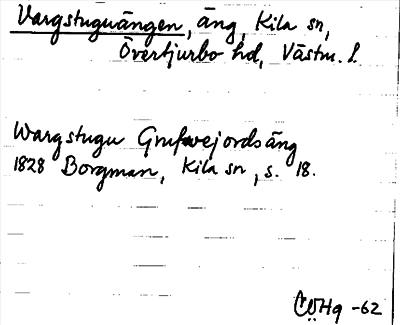 Vargstuguängen, äng, Kila sn,
Övertjurbo hd, Västm. l.
Wargstugu Grufvejordsäng
1828 Borgman, Kila sn, s. 18.
CÖHg -62